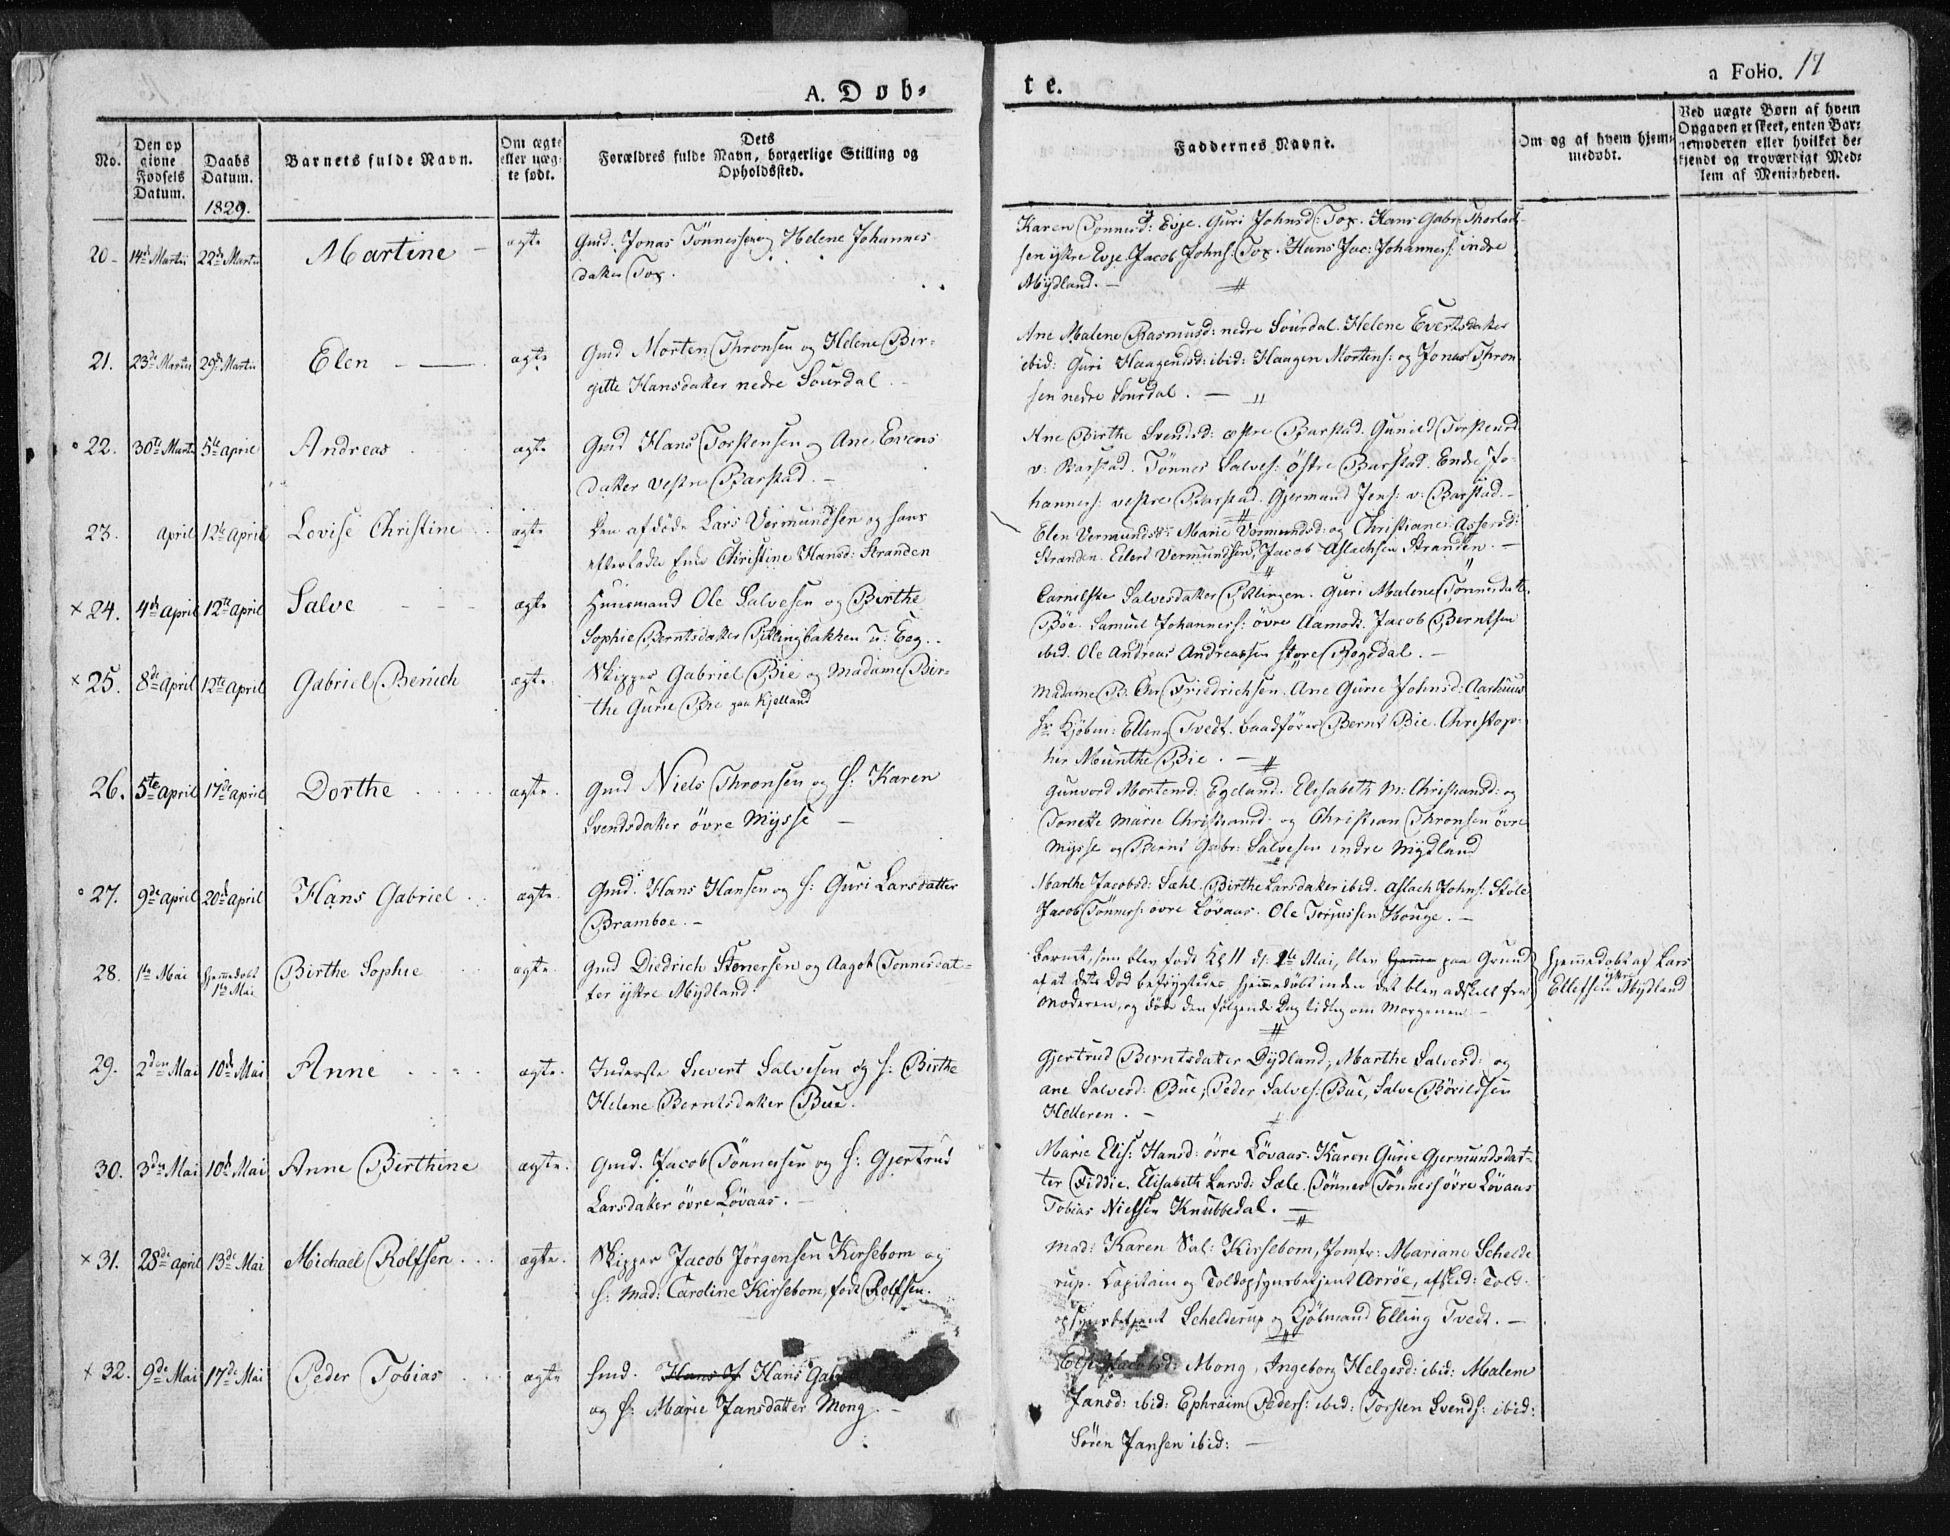 A. Døb-
te.
a Folio. 17
No.
Den op
givne
Fødsels
Datum.
Daabs
Datum.
1829.
Barnets fulde Navn.
Om ægte
eller uæg-
te født.
Dets
Forældres fulde Navn, borgerlige Stilling og
Opholdssted.
Faddernes Navne.
Om og af hvem hjem-
medøbt.
Ved uægte Børn af hvem
Opgaven er skeet, enten Bar-
nemoderen eller hvilket be-
kjendt og troværdigt Med-
lem af Menigheden.
20 14de Martii 22de Martii Martine ægte
Gmd. Jonas Tönnessen og Helene Johannes
datter Tox.
Karen Tönnesd: Evje. Guri Johnsd: Tox. Hans Gabr: Thorlod-
sen ystre Evje. Jacob Johns: Tox. Hans Jac: Johanness: indre
Mydland. —
21. 23de Martii 29de Martii Elen ægte
Gmd Morten Thronsen og Helene Bir-
gitte Hansdatter nedre Sourdal.
Ane Malene Rasmusd: nedre Sourdal. Helene Evertsdatter
ibid: Guri Haagensd: ibid: Haagen Mortens: og Jonas Thron
sen nedre Sourdal. —
22. 30te Martii 5te April Andreas ægte
Gmd Hans Torstensen og Ane Evens
datter vestre Barstad. —
Ane Birthe Svendsd: östre Barstad. Gunild Torstensd
v: Barstad. Tönnes Salves: östre Barstad. Endre Jo-
hanness: vestre Barstad. Gjermund Jens: v: Barstad.
23. April 12te April Lovise Christine ægte
den afdöde Lars Vermundsen og hans
efterladte Enke Christine Hansd: Stranden
Elen Vermundsd: Marie Vermundsd: og Christiane Assersd:
Stranden. Edert Vermundsen, Jacob Aslachsen Stranden. —
× 24. 4de April 12te April Salve ægte
Huusmand Ole Salvesen og Birthe
Sophie Berntsdatter Pillingbakken u: Eeg.
Salvesdatter Guri Malene Tönnesdat
Böe. Samuel Johanness: övre Aamodt. Jacob Berntsen
ibid. Ole Andreas Andreassen store Rogsdal. —
× 25. 8de April 12te April Gabriel Berüch ægte
Skipper Gabriel Bie og Madame Bir-
the Gurie Bie paa Kjelland
Madame B. Chr Friedrichsen. Ane Gurie Johnsd: Aarhuus
Hr Kjöbm: Elling Tvedt. Baadförer Bernt Bie. Christop-
her Meunthe Bie. —
26. 5te April 17de April Dorthe ægte.
Gmd Niels Thronsen og H: Karen
Svendsdatter övre Mysse —
Gunvord Mortensd: Egeland. Elisabeth M: Christiansd: og
Tonette Marie Christiansd: og Christian Thronsen övre
Mysse og Bernt Gabr: Salvesen indre Mydland
27. 9de April 20de April Hans Gabriel ægte.
Gmd. Hans Hansen og H: Guri Larsdatter
Bramboe. —
Marthe Jacobsd: Sæhl. Birthe Larsdatter ibid. Aslach Johns: Stöle
Jacob Tönness: övre Lövaas. Ole Torjussen Houge. —
28. 1te Mai Hjemmedöbt
1te Mai Birthe Sophie ægte.
Gmd Diedrich Stenersen og Aagot Tonnesdat-
ter ystre Mydland
Barnet, som blev födt Kl 11 d: 1te Mai, blev paa Grund
af at dets Död befrygtedes hjemmedöbt inden det blev adskilt fra
Moderen, og döde den fölgende Dag tidlig om Morgenen —
Hjemmedöbt af Lars
Ellefsen ystre Mydland
29. 2den Mai 10de Mai Anne ægte.
Inderste Sievert Salvesen og H: Birthe
Helene Berntsdatter Bue.
Gjertrud Berntsdatter Dydland, Marthe Salvesd: og
Ane Salvesd: Bue, Peder Salves: Bue, Salve Bövildsen
Helleren. —
30. 3die Mai 10de Mai Anne Berthine ægte.
Gmd. Jacob Tönnessen og H: Gjertrud
Larsdatter övre Lövaas. —
Marie Elis: Hansd: övre Lövaas. Karen Gurie Gjermundsdat-
ter Fiddie. Elisabeth Larsd: Sæle. Tönnes Tönness: övre Lövaas
Tobias Nielsen Knubbedal. —
× 31. 28de April 13de Mai Michael Rolfsen ægte.
Skipper Jacob Jörgensen Kirsebom og
H: Mad: Caroline Kirsebom, födt Rolfsen.
Mad: Karen Sal: Kirsebom, Jomfr: Mariane Schelde
rup. Capitain og Toldopsynsbetjent Arröe, afsked: Told-
opsynsbetjent Schelderup og Kjöbmand Elling Tvedt. —
× 32. 9de Mai 17de Mai Peder Tobias ægte
Hmd. Hans Hans Gab
og H: Marie Jansdatter Mong. —
Jacobsd: Mong, Ingeborg Helgesd: ibid: Malene
Jansd: ibid: Ephraim Peders: ibid: Torsten Svends: ibid:
Sören Jansen ibid: —